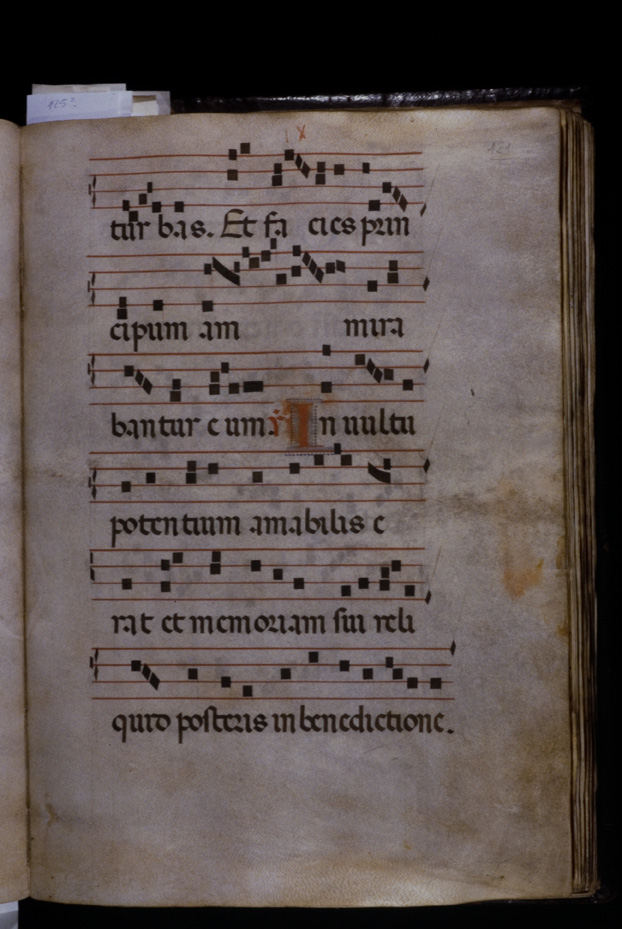 125?
X
121
tur bas. Et fa cies prin
cipum am mira
bantur e um. In uultu
potentium amabilis e
rat et memoriam sui reli
quit posteris in benedictione.